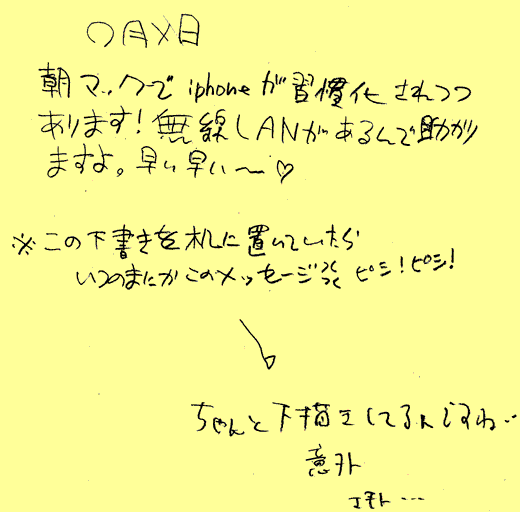 〇月×日
朝マックでiphoneが習慣化されつつ
あります!無線LANがあるんで助かり
ますよ。早い早い〜♡
※この下書きを机に置いていたら
いつのまにかこのメッセージが ピシ!ピシ!
ちゃんと下描きしてるんですね..
意外
エモト…